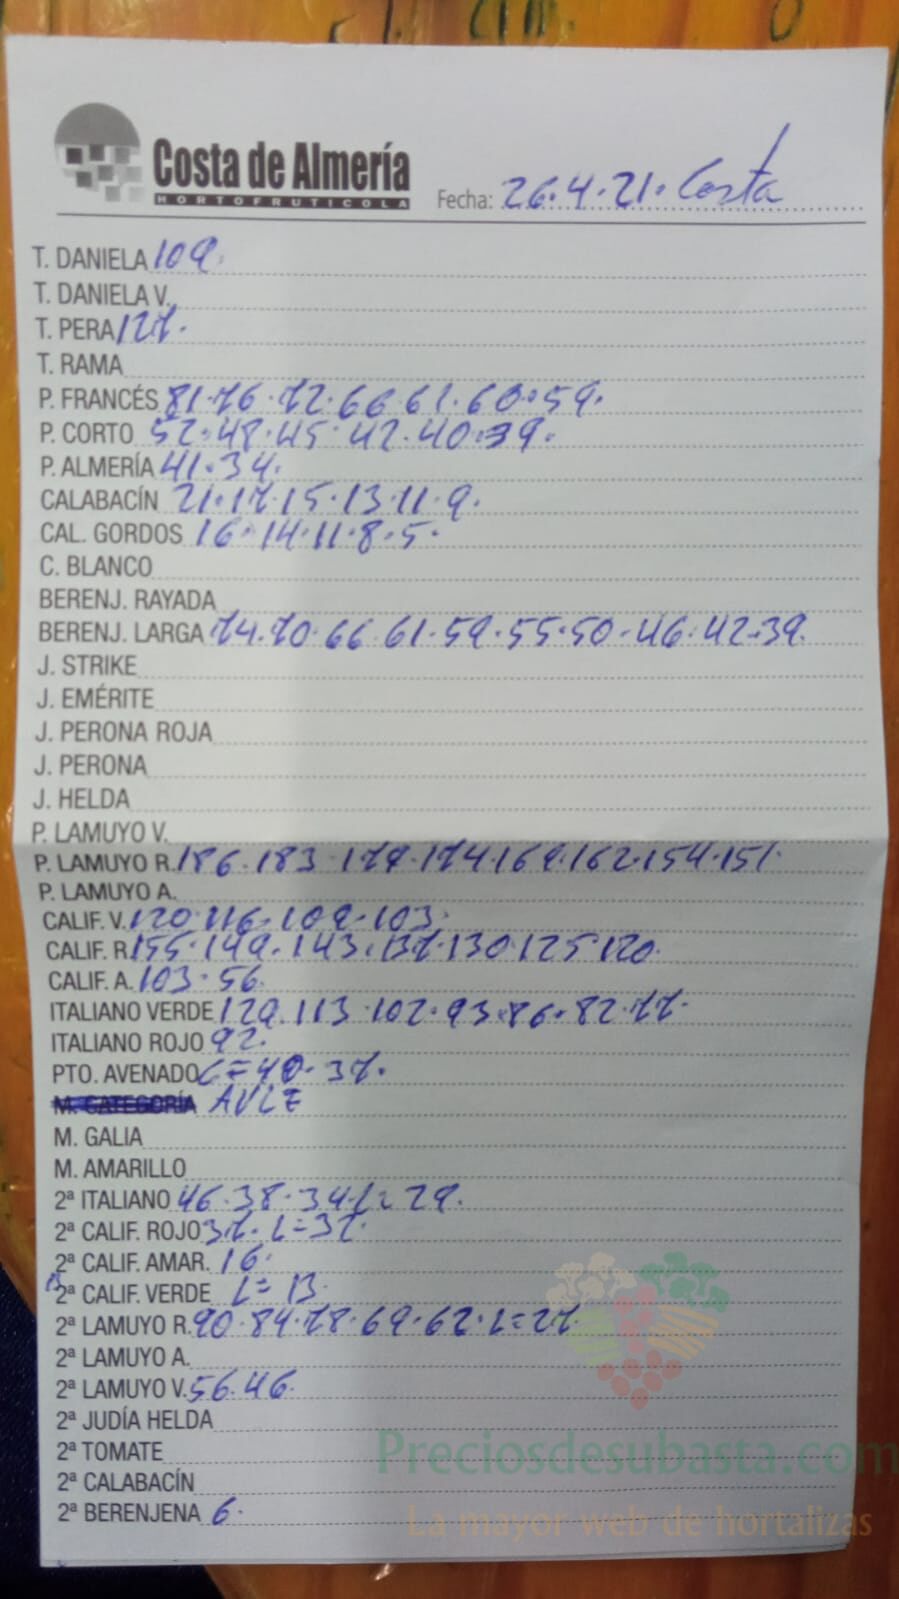 Costa de Almería
HORTOFRUTICOLA
Fecha: 26.4.21. Costa
T. DANIELA 109.
T. DANIELA V.
T. PERA 127.
T. RAMA
P. FRANCÉS 81.76.72.66.61.60.59.
P. CORTO 52.48.45.42.40.39.
P. ALMERÍA 41.34.
CALABACÍN 21.17.15.13.11.9.
CAL. GORDOS 16.14.11.8.5.
C. BLANCO
BERENJ. RAYADA
BERENJ. LARGA 74.70.66.61.59.55.50.46.42.39.
J. STRIKE
J. EMÉRITE
J. PERONA ROJA
J. PERONA
J. HELDA
P. LAMUYO V.
P. LAMUYO R. 186.183.179.174.169.162.154.151.
P. LAMUYO A.
CALIF. V. 120.116.109.103.
CALIF. R. 155.149.143.137.130.125.120.
CALIF. A. 103.56.
ITALIANO VERDE 129.113.102.93.86.82.77.
ITALIANO ROJO 92.
PTO. AVENADO L=40.37.
M. CATEGORÍA
M. GALIA
M. AMARILLO
2ª ITALIANO 46.38.34.L=29.
2ª CALIF. ROJO 37.L=32.
2ª CALIF. AMAR. 16.
13
2ª CALIF. VERDE L=13.
2ª LAMUYO R. 90.84.78.69.62.L=27.
2ª LAMUYO A.
2ª LAMUYO V. 56.46.
2ª JUDÍA HELDA
2ª TOMATE
Preciosdesubasta.com
2ª CALABACÍN
2ª BERENJENA 6.
La mayor web de hortalizas